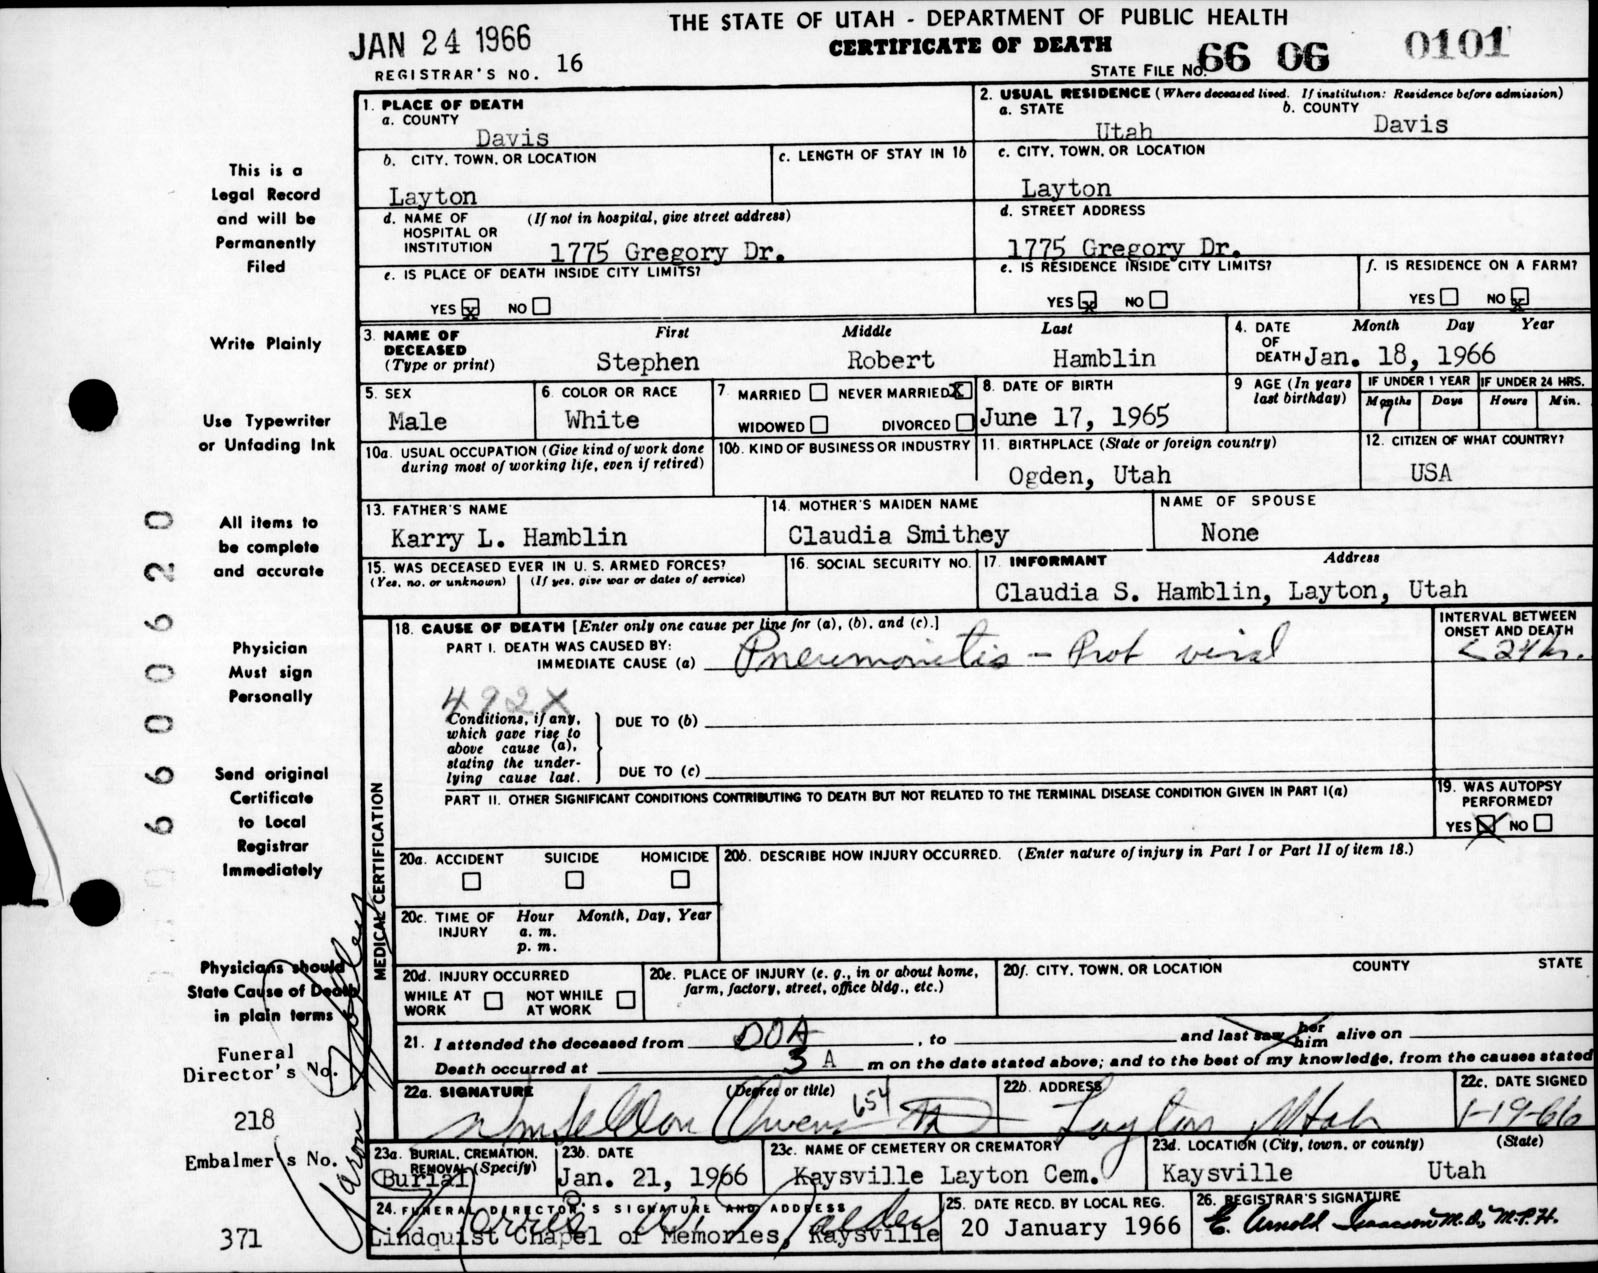 THE STATE OF UTAH - DEPARTMENT OF PUBLIC HEALTH
CERTIFICATE OF DEATH
JAN 24 1966
REGISTRAR'S NO. 16
STATE FILE NO. 66 06 0101
1. PLACE OF DEATH
a. COUNTY
Davis
2. USUAL RESIDENCE (Where deceased lived. If institution: Residence before admission)
a. STATE
Utah
b. COUNTY
Davis
b. CITY, TOWN, OR LOCATION
Layton
c. LENGTH OF STAY IN 1b
c. CITY, TOWN, OR LOCATION
Layton
d. NAME OF HOSPITAL OR INSTITUTION
(If not in hospital, give street address)
1775 Gregory Dr.
d. STREET ADDRESS
1775 Gregory Dr.
e. IS PLACE OF DEATH INSIDE CITY LIMITS?
YES x NO
e. IS RESIDENCE INSIDE CITY LIMITS?
YES x NO
f. IS RESIDENCE ON A FARM?
YES NO x
3. NAME OF DECEASED
(Type or print)
First Middle Last
Stephen Robert Hamblin
4. DATE OF DEATH
Month Day Year
Jan. 18, 1966
5. SEX
Male
6. COLOR OR RACE
White
7. MARRIED NEVER MARRIED X
WIDOWED DIVORCED
8. DATE OF BIRTH
June 17, 1965
9 AGE (In years last birthday)
IF UNDER 1 YEAR
Months Days
7
IF UNDER 24 HRS.
Hours Min.
10a. USUAL OCCUPATION (Give kind of work done during most of working life, even if retired)
10b. KIND OF BUSINESS OR INDUSTRY
11. BIRTHPLACE (State or foreign country)
Ogden, Utah
12. CITIZEN OF WHAT COUNTRY?
USA
13. FATHER'S NAME
Karry L. Hamblin
14. MOTHER'S MAIDEN NAME
Claudia Smithey
NAME OF SPOUSE
None
15. WAS DECEASED EVER IN U. S. ARMED FORCES?
(Yes, no, or unknown) (If yes, give war or dates of service)
16. SOCIAL SECURITY NO.
17. INFORMANT Address
Claudia S. Hamblin, Layton, Utah
MEDICAL CERTIFICATION
18. CAUSE OF DEATH [Enter only one cause per line for (a), (b), and (c).]
PART I. DEATH WAS CAUSED BY:
IMMEDIATE CAUSE (a) Pneumonitis - Prob viral
INTERVAL BETWEEN ONSET AND DEATH
< 24 hr.
492X
Conditions, if any, which gave rise to above cause (a), stating the underlying cause last.
DUE TO (b)
DUE TO (c)
PART II. OTHER SIGNIFICANT CONDITIONS CONTRIBUTING TO DEATH BUT NOT RELATED TO THE TERMINAL DISEASE CONDITION GIVEN IN PART I(a)
19. WAS AUTOPSY PERFORMED?
YES X NO
20a. ACCIDENT SUICIDE HOMICIDE
20b. DESCRIBE HOW INJURY OCCURRED. (Enter nature of injury in Part I or Part II of item 18.)
20c. TIME OF INJURY
Hour Month, Day, Year
a. m.
p. m.
20d. INJURY OCCURRED
WHILE AT WORK NOT WHILE AT WORK
20e. PLACE OF INJURY (e. g., in or about home, farm, factory, street, office bldg., etc.)
20f. CITY, TOWN, OR LOCATION COUNTY STATE
21. I attended the deceased from DOA , to and last saw her him alive on
Death occurred at 3 A m on the date stated above; and to the best of my knowledge, from the causes stated
22a. SIGNATURE (Degree or title)
Owens 654
22b. ADDRESS
Layton Utah
22c. DATE SIGNED
1-19-66
23a. BURIAL, CREMATION, REMOVAL (Specify)
Burial
23b. DATE
Jan. 21, 1966
23c. NAME OF CEMETERY OR CREMATORY
Kaysville Layton Cem.
23d. LOCATION (City, town, or county) (State)
Kaysville Utah
24. FUNERAL DIRECTOR'S SIGNATURE AND ADDRESS
Lindquist Chapel of Memories, Kaysville
25. DATE RECD. BY LOCAL REG.
20 January 1966
26. REGISTRAR'S SIGNATURE
E. Arnold Isaacson M.D., M.P.H.
This is a
Legal Record
and will be
Permanently
Filed
Write Plainly
Use Typewriter
or Unfading Ink
All items to
be complete
and accurate
Physician
Must sign
Personally
Send original
Certificate
to Local
Registrar
Immediately
Physicians should
State Cause of Death
in plain terms
Funeral
Director's No.
218
Embalmer's No.
371
6600620